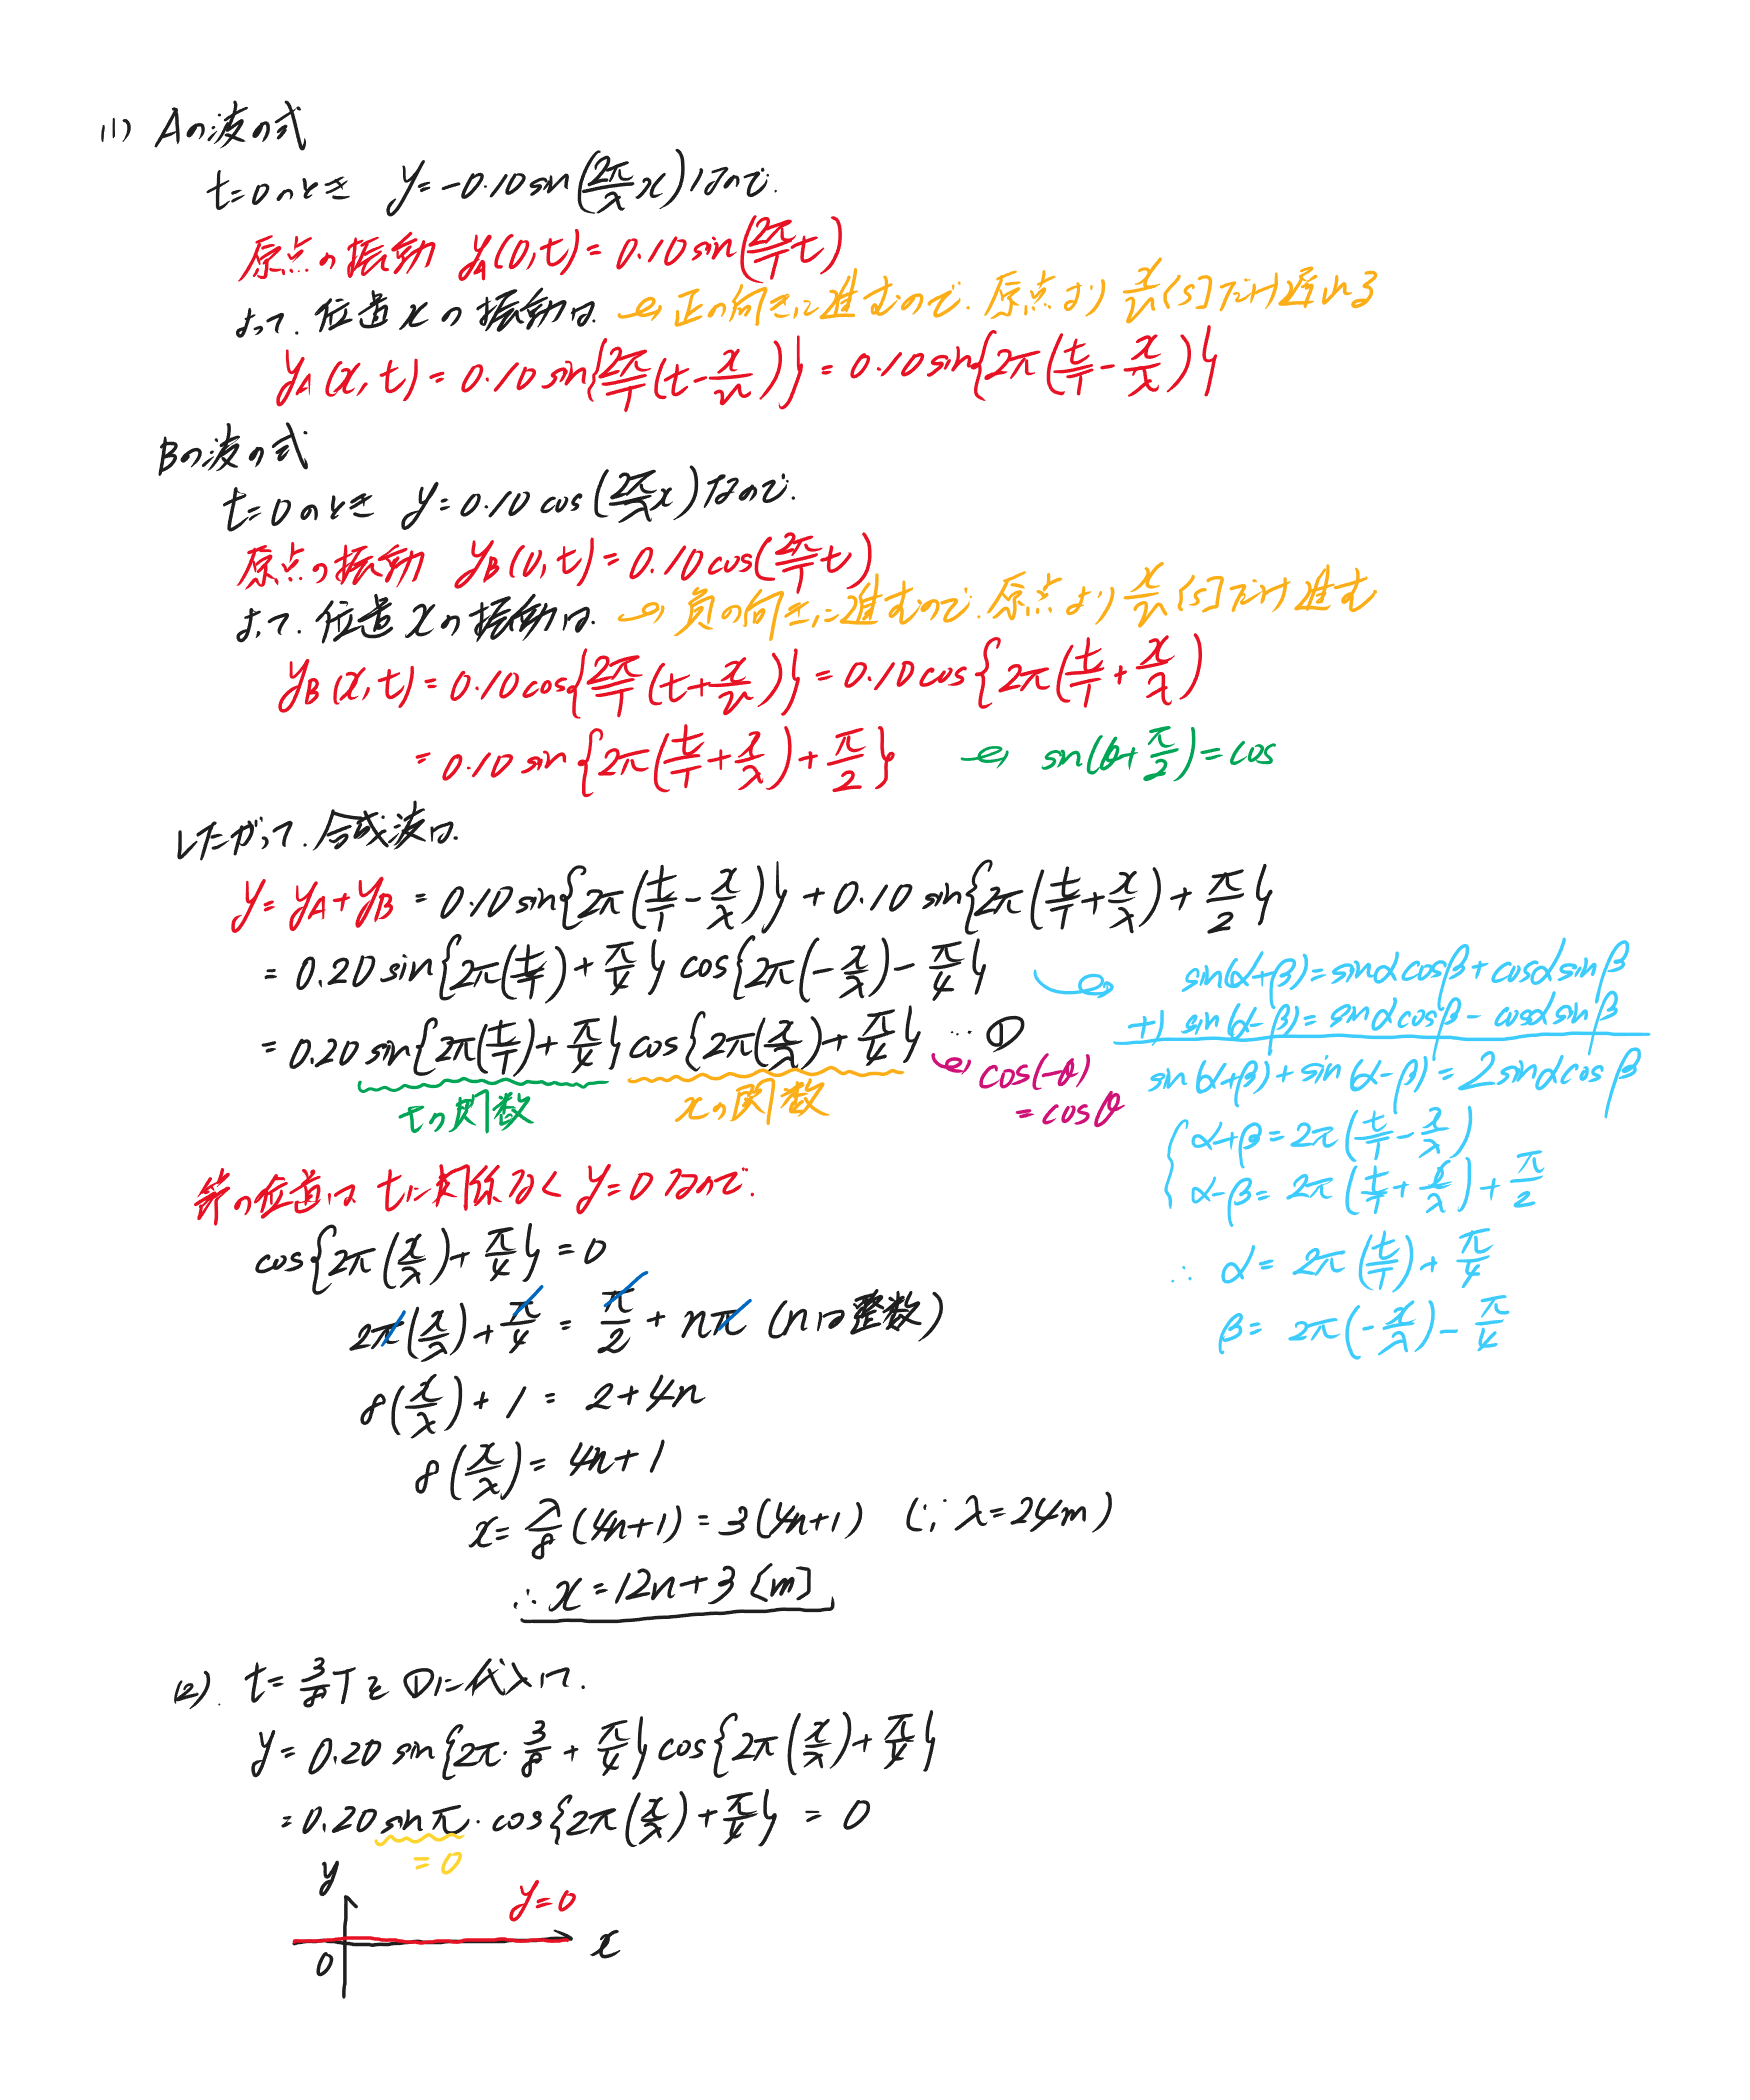 (1) Aの波の式
t=0のとき y=-0.10sin(2π/λ x)なので.
原点の振動 y_A(0,t)=0.10sin(2π/T t)
よって.位置xの振動は. → 正の向きに進むので.原点より x/v[s]だけ遅れる
y_A(x,t)=0.10sin{2π/T(t-x/v)}=0.10sin{2π(t/T-x/λ)}
Bの波の式
t=0のとき y=0.10cos(2π/λ x)なので.
原点の振動 y_B(0,t)=0.10cos(2π/T t)
よって.位置xの振動は. → 負の向きに進むので.原点より x/v[s]だけ進む
y_B(x,t)=0.10cos{2π/T(t+x/v)}=0.10cos{2π(t/T+x/λ)
=0.10sin{2π(t/T+x/λ)+π/2} → sin(θ+π/2)=cos
したがって.合成波は.
y=y_A+y_B=0.10sin{2π(t/T-x/λ)}+0.10sin{2π(t/T+x/λ)+π/2}
=0.20sin{2π(t/T)+π/4}cos{2π(-x/λ)-π/4}
=0.20sin{2π(t/T)+π/4}cos{2π(x/λ)+π/4} …①
tの関数 xの関数
cos(-θ)
=cosθ
sin(α+β)=sinαcosβ+cosαsinβ
+) sin(α-β)=sinαcosβ-cosαsinβ
sin(α+β)+sin(α-β)=2sinαcosβ
{α+β=2π(t/T-x/λ)
α-β=2π(t/T+x/λ)+π/2
∴ α=2π(t/T)+π/4
β=2π(-x/λ)-π/4
節の位置は tに関係なく y=0なので.
cos{2π(x/λ)+π/4}=0
2π(x/λ)+π/4=π/2+nπ (nは整数)
8(x/λ)+1=2+4n
8(x/λ)=4n+1
x=λ/8(4n+1)=3(4n+1) (∵λ=24m)
∴x=12n+3[m]
(2). t=3/8Tを①に代入して.
y=0.20sin{2π・3/8+π/4}cos{2π(x/λ)+π/4}
=0.20sinπ・cos{2π(x/λ)+π/4}=0
=0
y
y=0
x
0